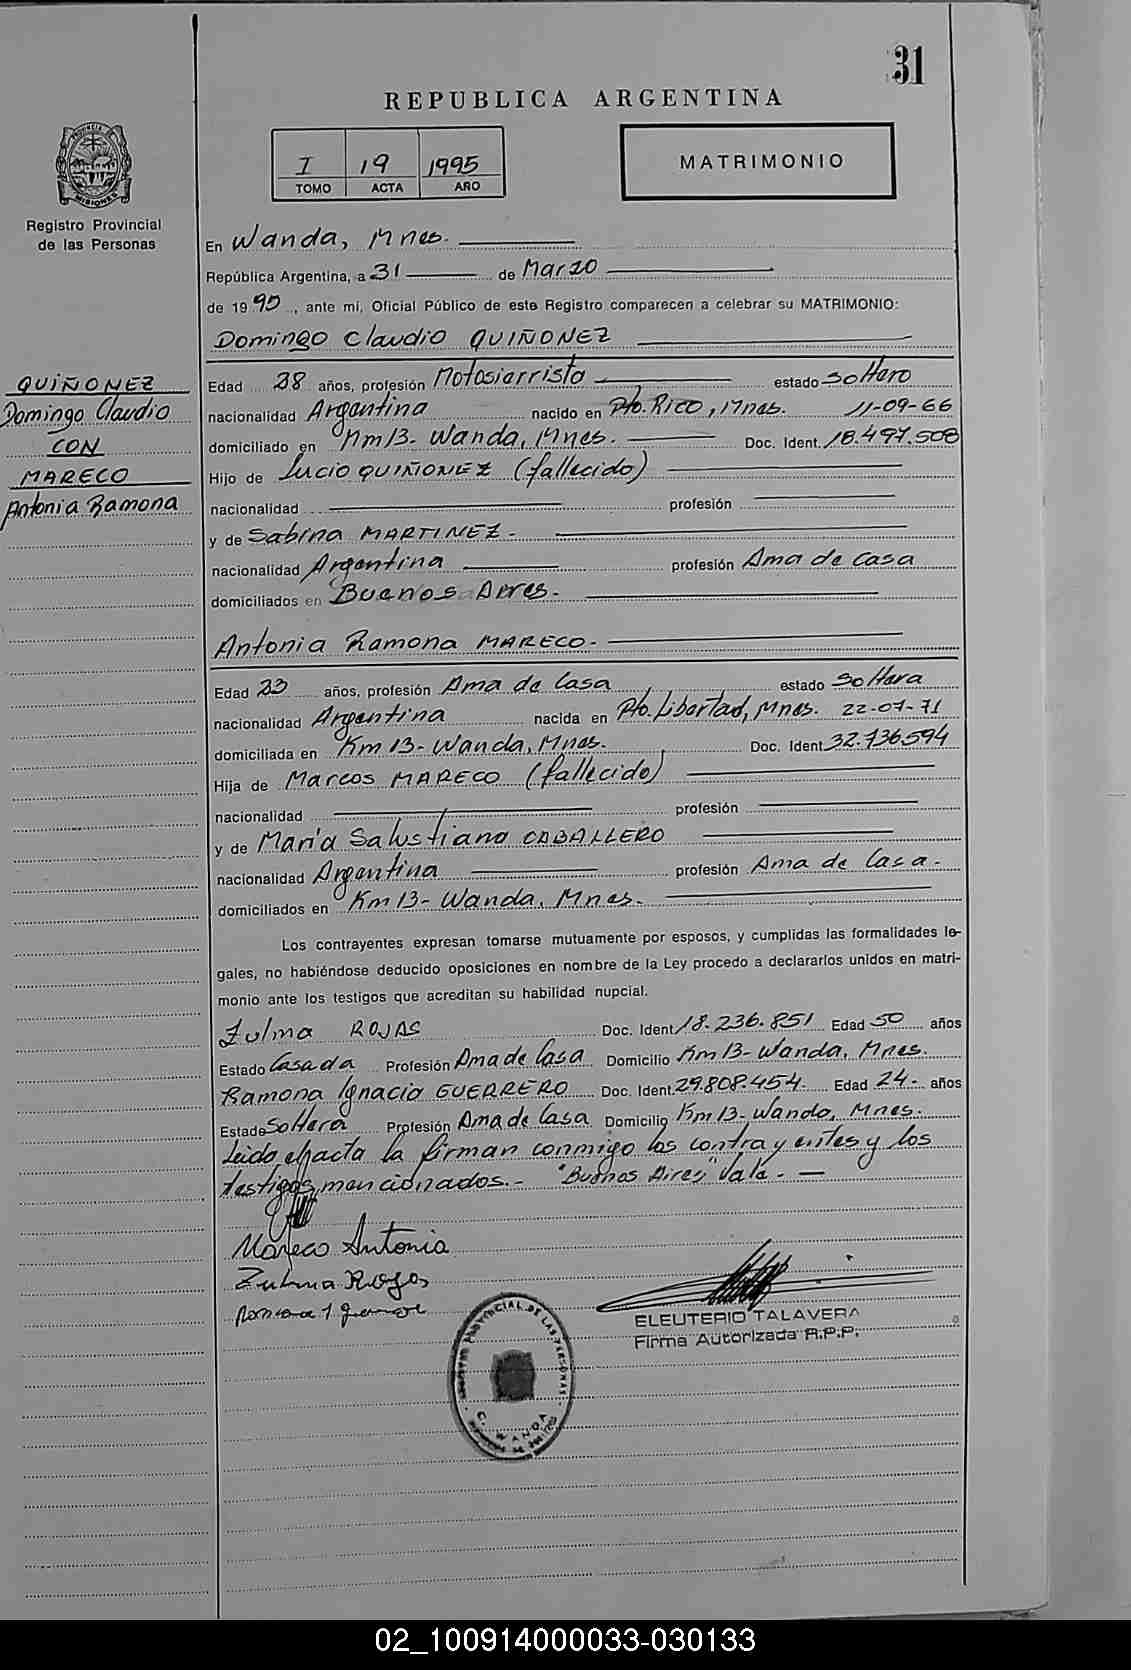 31
REPUBLICA ARGENTINA
I 19 1995
TOMO ACTA AÑO
MATRIMONIO
PROVINCIA DE
MISIONES
Registro Provincial
de las Personas
En Wanda, Mnes.
República Argentina, a 31 de Marzo
de 1995, ante mi, Oficial Público de este Registro comparecen a celebrar su MATRIMONIO:
Domingo Claudio QUIÑONEZ
QUIÑONEZ
Domingo Claudio
CON
MARECO
Antonia Ramona
Edad 28 años, profesión Motosierrista estado Soltero
nacionalidad Argentina nacido en Pto. Rico, Mnes. 11-09-66
domiciliado en Km 13- Wanda, Mnes. Doc. Ident. 18.497.508
Hijo de Lucio QUIÑONEZ (fallecido)
nacionalidad profesión
y de Sabina MARTINEZ.-
nacionalidad Argentina profesión Ama de Casa
domiciliados en Buenos Aires.-
Antonia Ramona MARECO.-
Edad 23 años, profesión Ama de Casa estado Soltera
nacionalidad Argentina nacida en Pto. Libertad, Mnes. 22-07-71
domiciliada en Km 13- Wanda, Mnes. Doc. Ident. 32.736.594
Hija de Marcos MARECO (fallecido)
nacionalidad profesión
y de María Salustiana CABALLERO
nacionalidad Argentina profesión Ama de Casa.
domiciliados en Km 13- Wanda, Mnes.
Los contrayentes expresan tomarse mutuamente por esposos, y cumplidas las formalidades le-
gales, no habiéndose deducido oposiciones en nombre de la Ley procedo a declararlos unidos en matri-
monio ante los testigos que acreditan su habilidad nupcial.
Zulma ROJAS Doc. Ident. 18.236.851 Edad 50 años
Estado Casada Profesión Ama de Casa Domicilio Km 13- Wanda, Mnes.
Ramona Ignacia GUERRERO Doc. Ident. 29.808.454. Edad 24- años
Estado Soltera Profesión Ama de Casa Domicilio Km 13- Wanda, Mnes.
Leida el acta la firman conmigo los contrayentes y los
testigos mencionados.- "Buenos Aires" Vale.-
Mareco Antonia
Zulma Rojas
Ramona I
ELEUTERIO TALAVERA
Firma Autorizada R.P.P.
REGISTRO PROVINCIAL DE LAS PERSONAS
WANDA
02_100914000033-030133